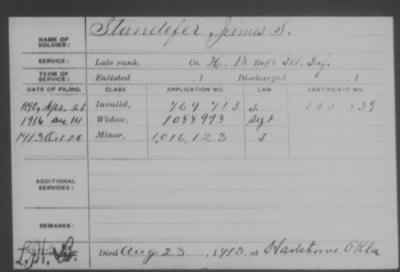 NAME OF SOLDIER: Standefer James S.
SERVICE: Late rank, Co. H, 18 Reg't Ill. Inf.
TERM OF SERVICE: Enlisted , 1 Discharged , 1
DATE OF FILING. CLASS APPLICATION NO. LAW CERTIFICATE NO.
1890, Apr. 21 Invalid, 769 713 J. 839
1916 14 Widow, 1088993 Sept
1913 Oct 20 Minor, 1,016,123 J
ADDITIONAL SERVICES:
REMARKS:
Died Aug 23, 1913, at Hartshorne Okla